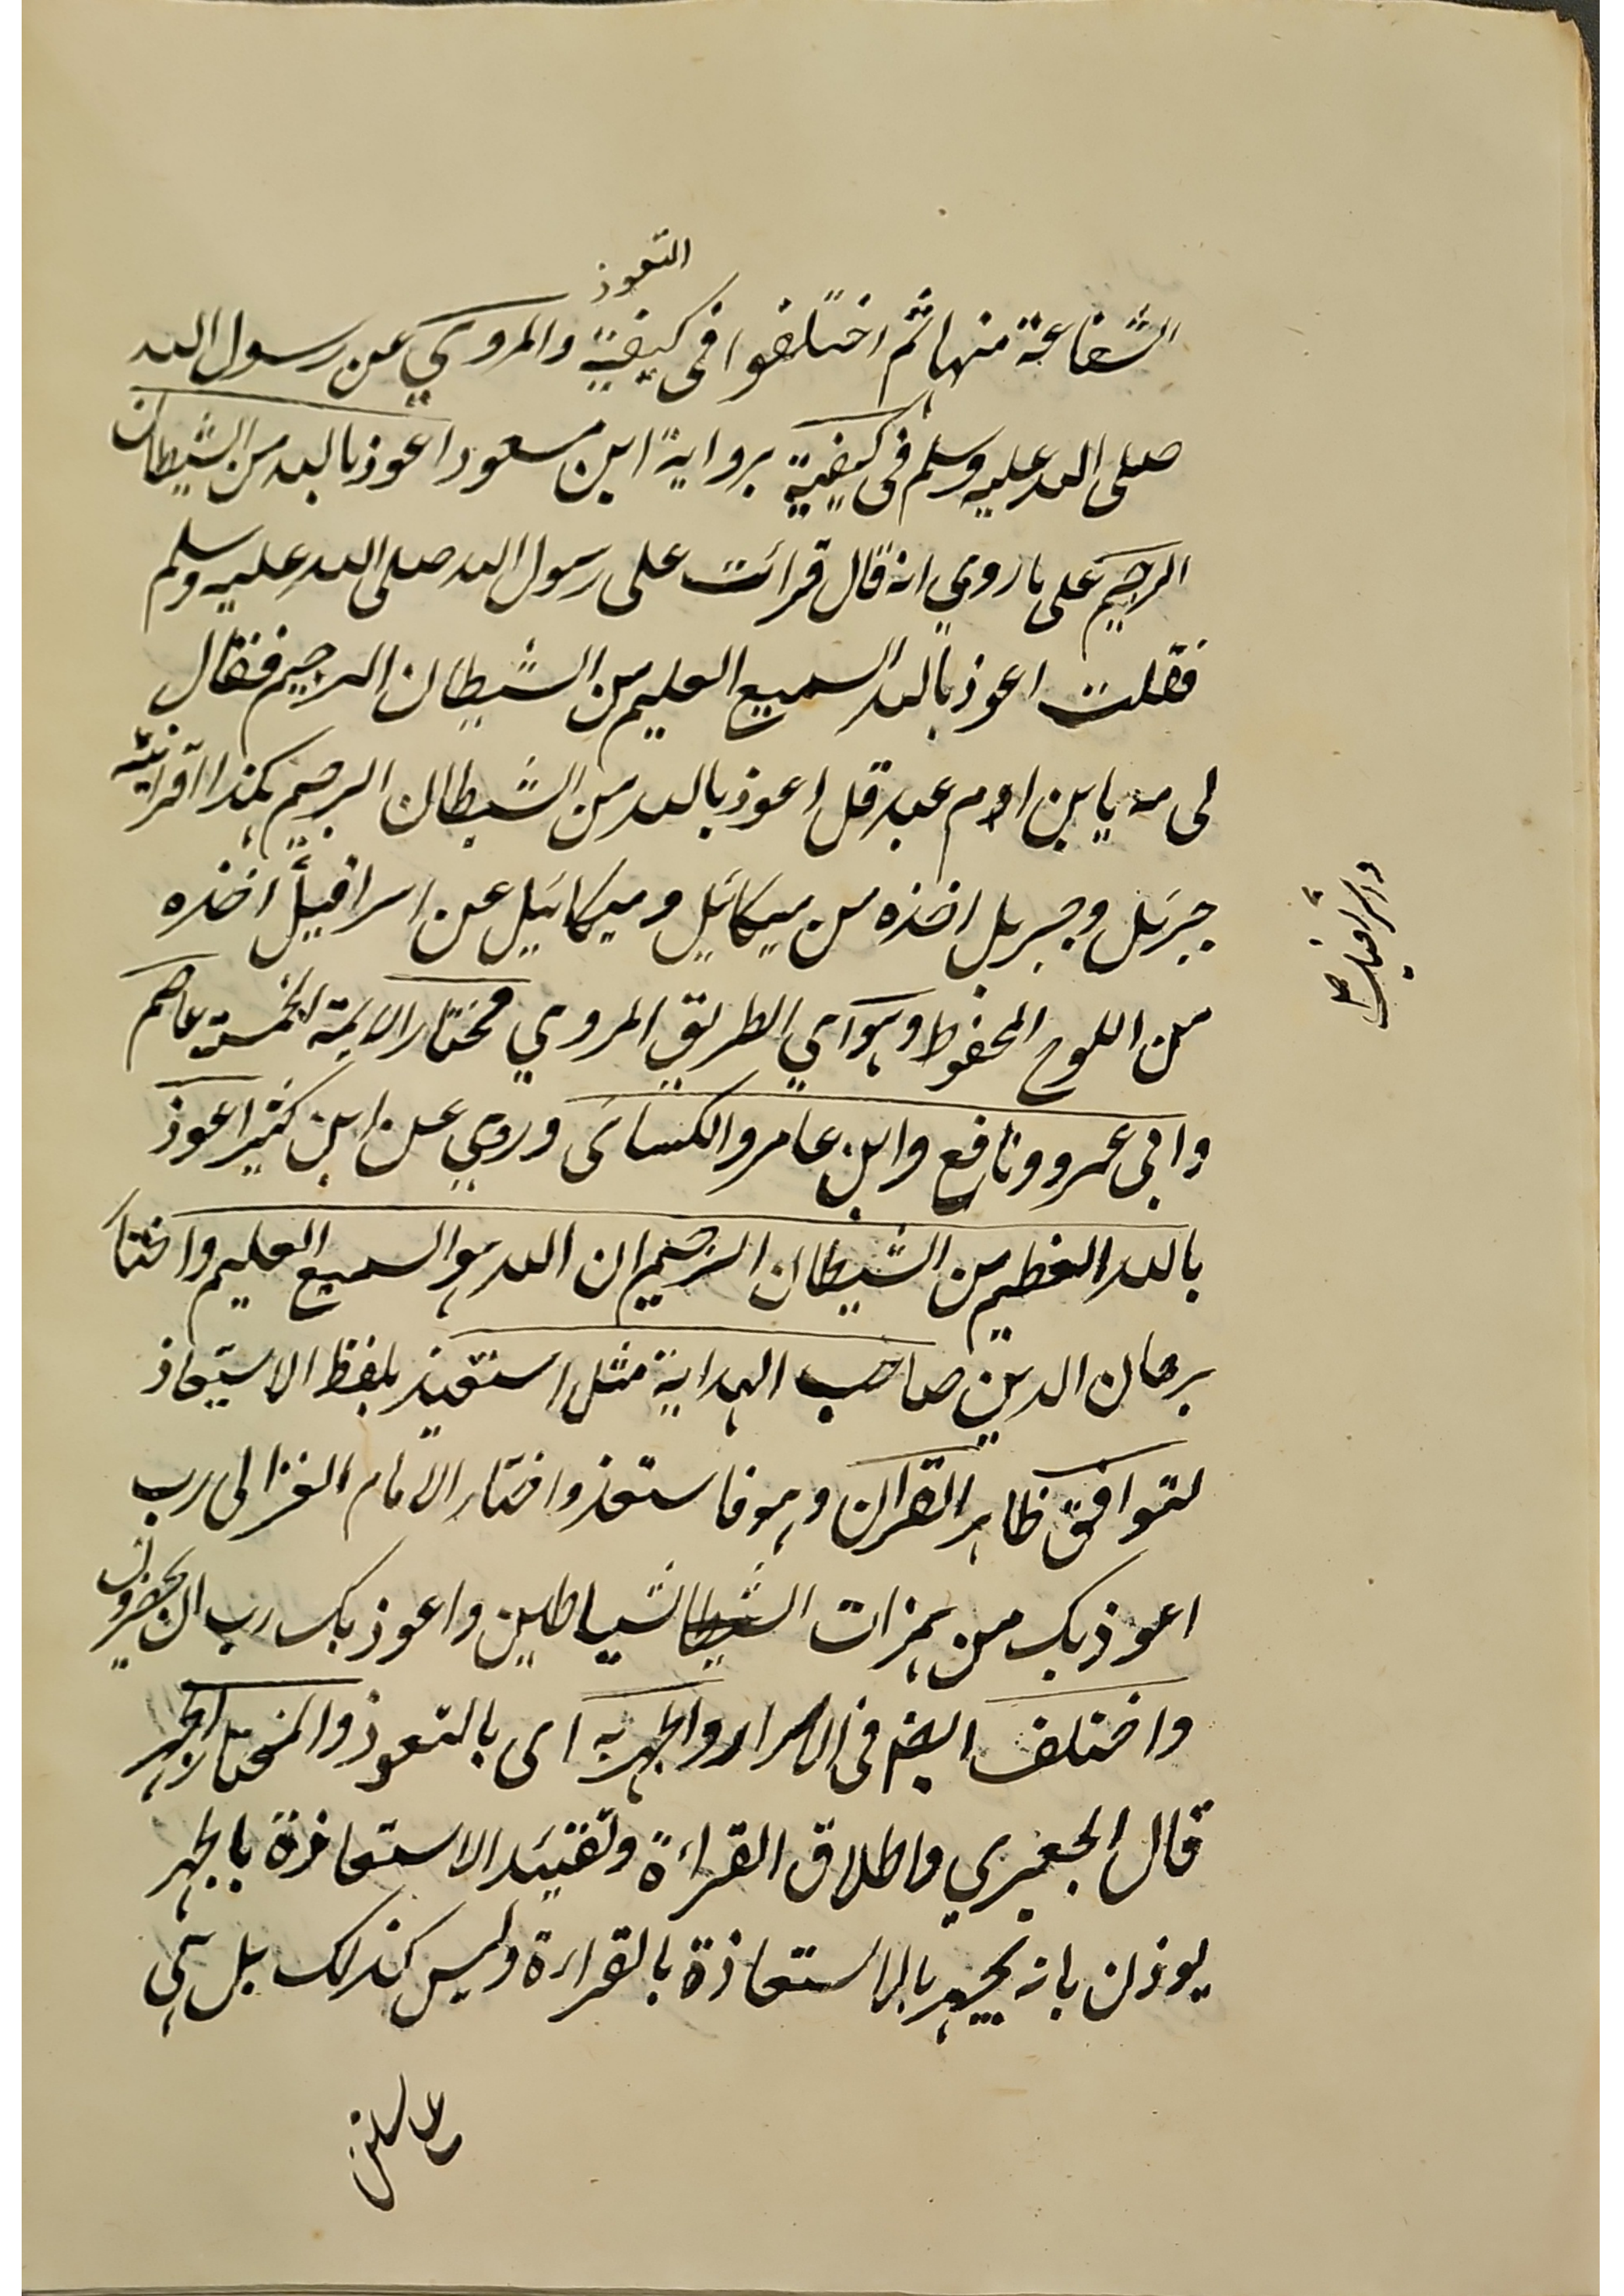 التعوذ
الشفاعة منها ثم اختلفوا فى كيفية والمروي عن رسول الله
صلى الله عليه وسلم فى كيفية برواية ابن مسعود اعوذ بالله من الشيطان
الرجيم على ما روي انه قال قرائت على رسول الله صلى الله عليه وسلم
فقلت اعوذ بالله السميع العليم من الشيطان الرجيم فقال
لى مه يا بن ام عبد قل اعوذ بالله من الشيطان الرجيم هكذا اقرانيه
جبرئل وجبريل اخذه من ميكائيل وميكائيل عن اسرافيل اخذه
واسرافيل
من اللوح المحفوظ وهو اي الطريق المروي مختار الائمة الخمسة عاصم
وابى عمرو ونافع وابن عامر والكسائى وروي عن ابن كثير اعوذ
بالله العظيم من الشيطان الرجيم ان الله هو السميع العليم واختار
برهان الدين صاحب الهداية مثل استعيذ بلفظ الاستعاذ
لتوافق ظاهر القران وهو فاستعذ واختار الامام الغزالى رب
اعوذ بك من همزات الشياطين واعوذ بك رب ان يحضرون
واختلف ايضا فى الاسرار والجهر به اى بالتعوذ والمختار الجهر
قال الجعبري واطلاق القراءة وتقييد الاستعاذة بالجهر
يوذن بانه يجهر بالاستعاذة بالقراءة وليس كذلك بل هى